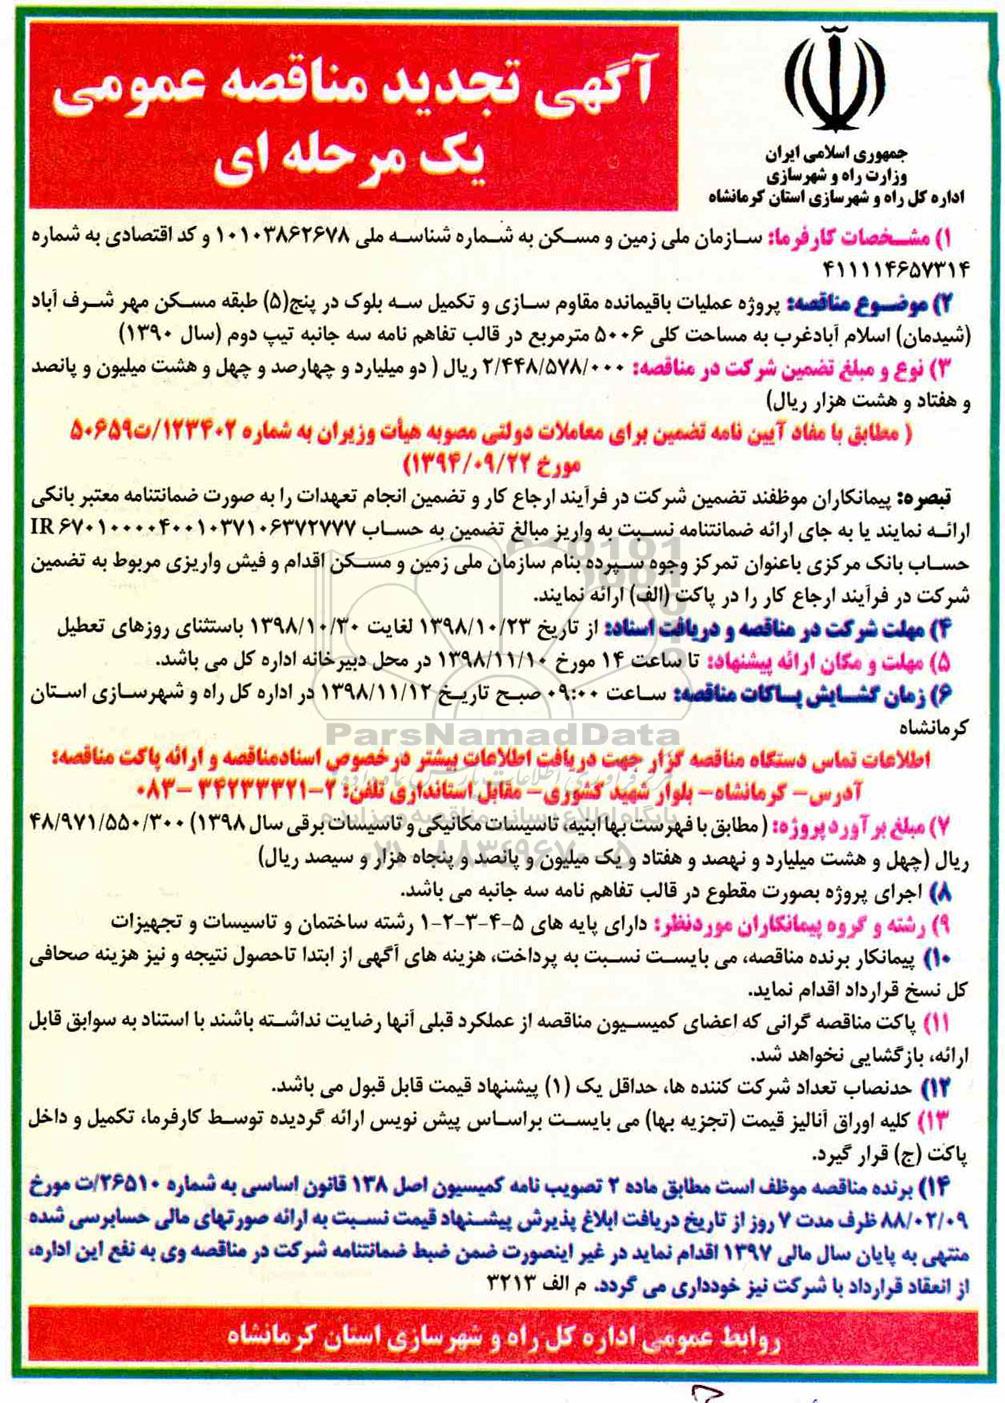 جمهوری اسلامی ایران
وزارت راه و شهرسازی
اداره کل راه و شهرسازی استان کرمانشاه
آگهی تجدید مناقصه عمومی
یک مرحله ای
۱) مشخصات کارفرما: سازمان ملی زمین و مسکن به شماره شناسه ملی ۱۰۱۰۳۸۶۲۶۷۸ و کد اقتصادی به شماره
۴۱۱۱۱۴۶۵۷۳۱۴
۲) موضوع مناقصه: پروژه عملیات باقیمانده مقاوم سازی و تکمیل سه بلوک در پنج(۵) طبقه مسکن مهر شرف آباد
(شیدمان) اسلام آبادغرب به مساحت کلی ۵۰۰۶ مترمربع در قالب تفاهم نامه سه جانبه تیپ دوم (سال ۱۳۹۰)
۳) نوع و مبلغ تضمین شرکت در مناقصه: ۲/۴۴۸/۵۷۸/۰۰۰ ریال ( دو میلیارد و چهارصد و چهل و هشت میلیون و پانصد
و هفتاد و هشت هزار ریال)
( مطابق با مفاد آیین نامه تضمین برای معاملات دولتی مصوبه هیأت وزیران به شماره ۱۲۳۴۰۲/ت۵۰۶۵۹
مورخ ۱۳۹۴/۰۹/۲۲)
تبصره: پیمانکاران موظفند تضمین شرکت در فرآیند ارجاع کار و تضمین انجام تعهدات را به صورت ضمانتنامه معتبر بانکی
ارائه نمایند یا به جای ارائه ضمانتنامه نسبت به واریز مبالغ تضمین به حساب IR ۶۷۰۱۰۰۰۰۴۰۰۱۰۳۷۱۰۶۳۷۲۷۷۷
حساب بانک مرکزی باعنوان تمرکز وجوه سپرده بنام سازمان ملی زمین و مسکن اقدام و فیش واریزی مربوط به تضمین
شرکت در فرآیند ارجاع کار را در پاکت (الف) ارائه نمایند.
۴) مهلت شرکت در مناقصه و دریافت اسناد: از تاریخ ۱۳۹۸/۱۰/۲۳ لغایت ۱۳۹۸/۱۰/۳۰ باستثنای روزهای تعطیل
۵) مهلت و مکان ارائه پیشنهاد: تا ساعت ۱۴ مورخ ۱۳۹۸/۱۱/۱۰ در محل دبیرخانه اداره کل می باشد.
۶) زمان گشایش پاکات مناقصه: ساعت ۰۹:۰۰ صبح تاریخ ۱۳۹۸/۱۱/۱۲ در اداره کل راه و شهرسازی استان
کرمانشاه
ParsNamadData
اطلاعات تماس دستگاه مناقصه گزار جهت دریافت اطلاعات بیشتر درخصوص اسنادمناقصه و ارائه پاکت مناقصه:
آدرس- کرمانشاه- بلوار شهید کشوری- مقابل استانداری تلفن: ۲-۳۴۲۳۳۳۲۱ -۰۸۳
پایگاه اطلاع رسانی مناقصه و مزایده
۷) مبلغ برآورد پروژه: ( مطابق با فهرست بها ابنیه، تاسیسات مکانیکی و تاسیسات برقی سال ۱۳۹۸) ۴۸/۹۷۱/۵۵۰/۳۰۰
ریال (چهل و هشت میلیارد و نهصد و هفتاد و یک میلیون و پانصد و پنجاه هزار و سیصد ریال)
۰۲۱-۸۸۳۴۹۶۷۰-۵
۸) اجرای پروژه بصورت مقطوع در قالب تفاهم نامه سه جانبه می باشد.
۹) رشته و گروه پیمانکاران موردنظر: دارای پایه های ۵-۴-۳-۲-۱ رشته ساختمان و تاسیسات و تجهیزات
۱۰) پیمانکار برنده مناقصه، می بایست نسبت به پرداخت، هزینه های آگهی از ابتدا تاحصول نتیجه و نیز هزینه صحافی
کل نسخ قرارداد اقدام نماید.
۱۱) پاکت مناقصه گرانی که اعضای کمیسیون مناقصه از عملکرد قبلی آنها رضایت نداشته باشند با استناد به سوابق قابل
ارائه، بازگشایی نخواهد شد.
۱۲) حدنصاب تعداد شرکت کننده ها، حداقل یک (۱) پیشنهاد قیمت قابل قبول می باشد.
۱۳) کلیه اوراق آنالیز قیمت (تجزیه بها) می بایست براساس پیش نویس ارائه گردیده توسط کارفرما، تکمیل و داخل
پاکت (ج) قرار گیرد.
۱۴) برنده مناقصه موظف است مطابق ماده ۲ تصویب نامه کمیسیون اصل ۱۳۸ قانون اساسی به شماره ۲۶۵۱۰/ت مورخ
۸۸/۰۲/۰۹ ظرف مدت ۷ روز از تاریخ دریافت ابلاغ پذیرش پیشنهاد قیمت نسبت به ارائه صورتهای مالی حسابرسی شده
منتهی به پایان سال مالی ۱۳۹۷ اقدام نماید در غیر اینصورت ضمن ضبط ضمانتنامه شرکت در مناقصه وی به نفع این اداره،
از انعقاد قرارداد با شرکت نیز خودداری می گردد. م الف ۳۲۱۳
روابط عمومی اداره کل راه و شهرسازی استان کرمانشاه